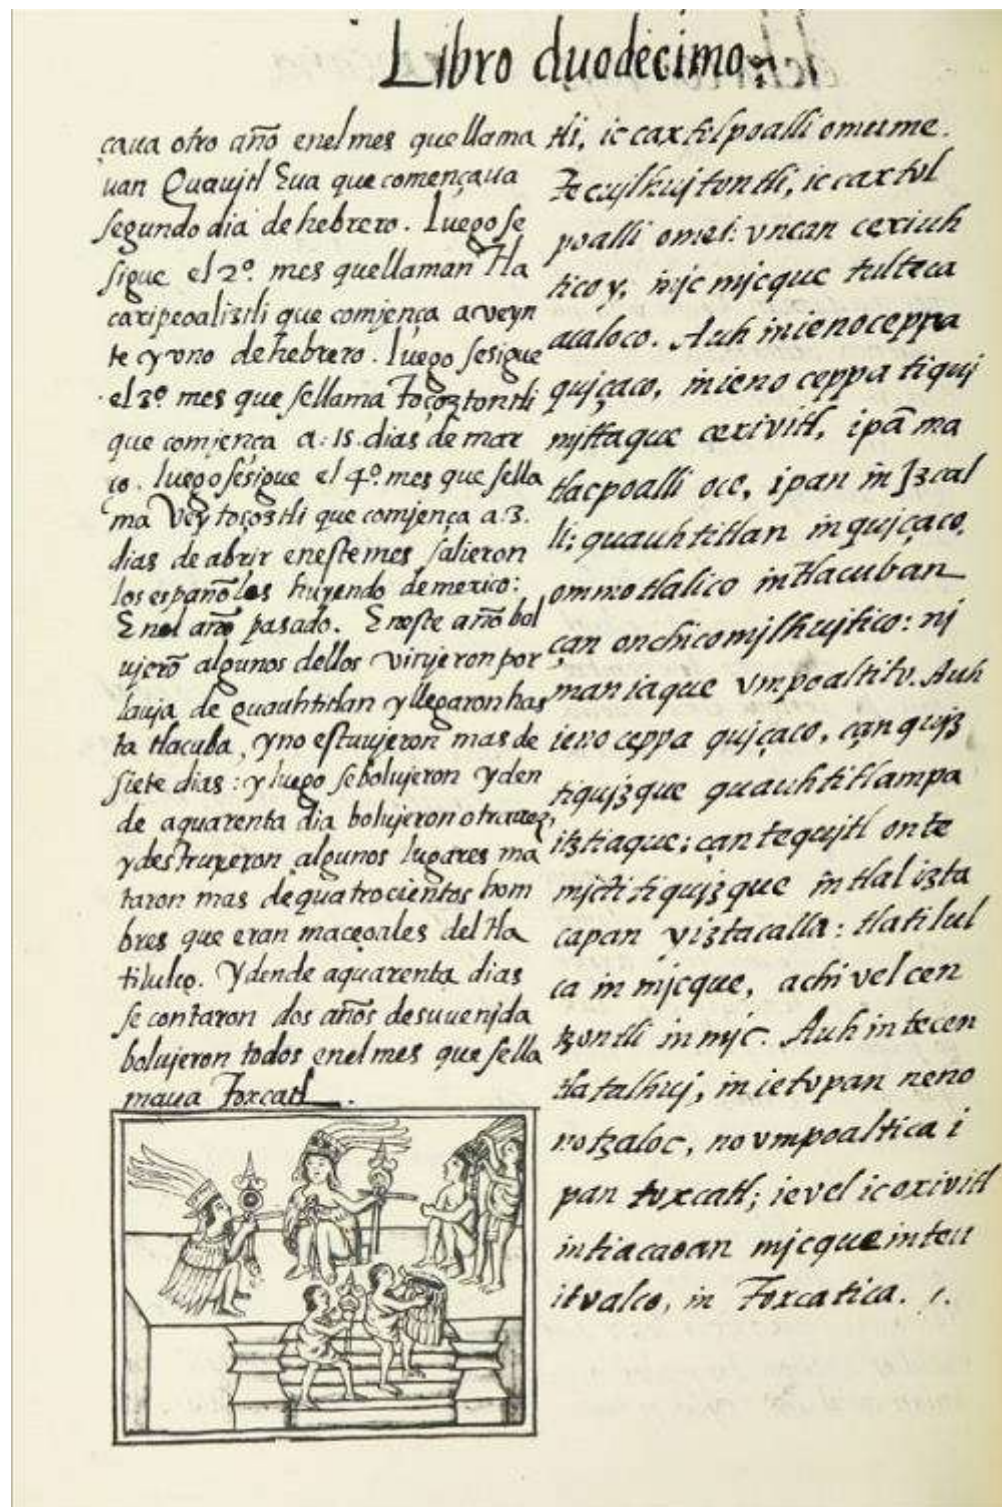 Libro duodecimo
caua otro año enel mes que llama
uan Quaujtl Eua que començaua
segundo dia de hebrero. Luego se
sigue el 2º. mes quellaman tla
caxipeoaliztli que comjença a veyn
te y vno de hebrero. luego se sigue
el 3º mes que sellama Toçoztontli
que comjença a .15. dias de mar
ço. luego se sigue el 4º. mes que sella
ma Vey toçoztli que comjença a .3.
dias de abrir eneste mes salieron
los españoles huyendo de mexico:
Enel año pasado. Eneste año bol
ujerõ algunos dellos vinjeron por
la uja de quauhtitlan y llegaron has
ta tlacuba, y no estuujeron mas de
siete dias: y luego se bolujeron y den
de a quarenta dia bolujeron otra uez,
y destruyeron algunos lugares ma
taron mas de quatrocientos hom
bres que eran maceoales del tla
tilulco. Y dende a quarenta dias
se contaron dos años de su uenjda
bolujeron todos enel mes que sella
maua Toxcatl.
tli, ic caxtolpoalli omume.
Tecujlhujtontli, ic caxtol
poalli omei: vncan cexiuh
tico y, injc mjcque tulteca
acaloco. Auh in ieno ceppa
qujçaco, in ieno ceppa tiquj
mjttaque cexivitl, ipã ma
tlacpoalli oce, ipan in Izcal
li: quauhtitlan in qujçaco,
ommotlalico in tlacuban
çan onchicomjlhujtico: nj
man iaque vmpoaltito. Auh
ieno ceppa qujçaco, çan qujz
tiqujzque quauhtitlampa
itztiaque: çan tequjtl onte
mjctitiqujzque in tlaliztа
capan yiztacalla: tlatilul
ca in mjcque, achi vel cen
tzontli in mjc. Auh in tecen
tlatalhuj, in ie topan neno
notzaloc, no vmpoaltica i
pan toxcatl; ie vel ic oxivitl
in tiacaoan mjcque in teu
itvalco, in Toxcatica.